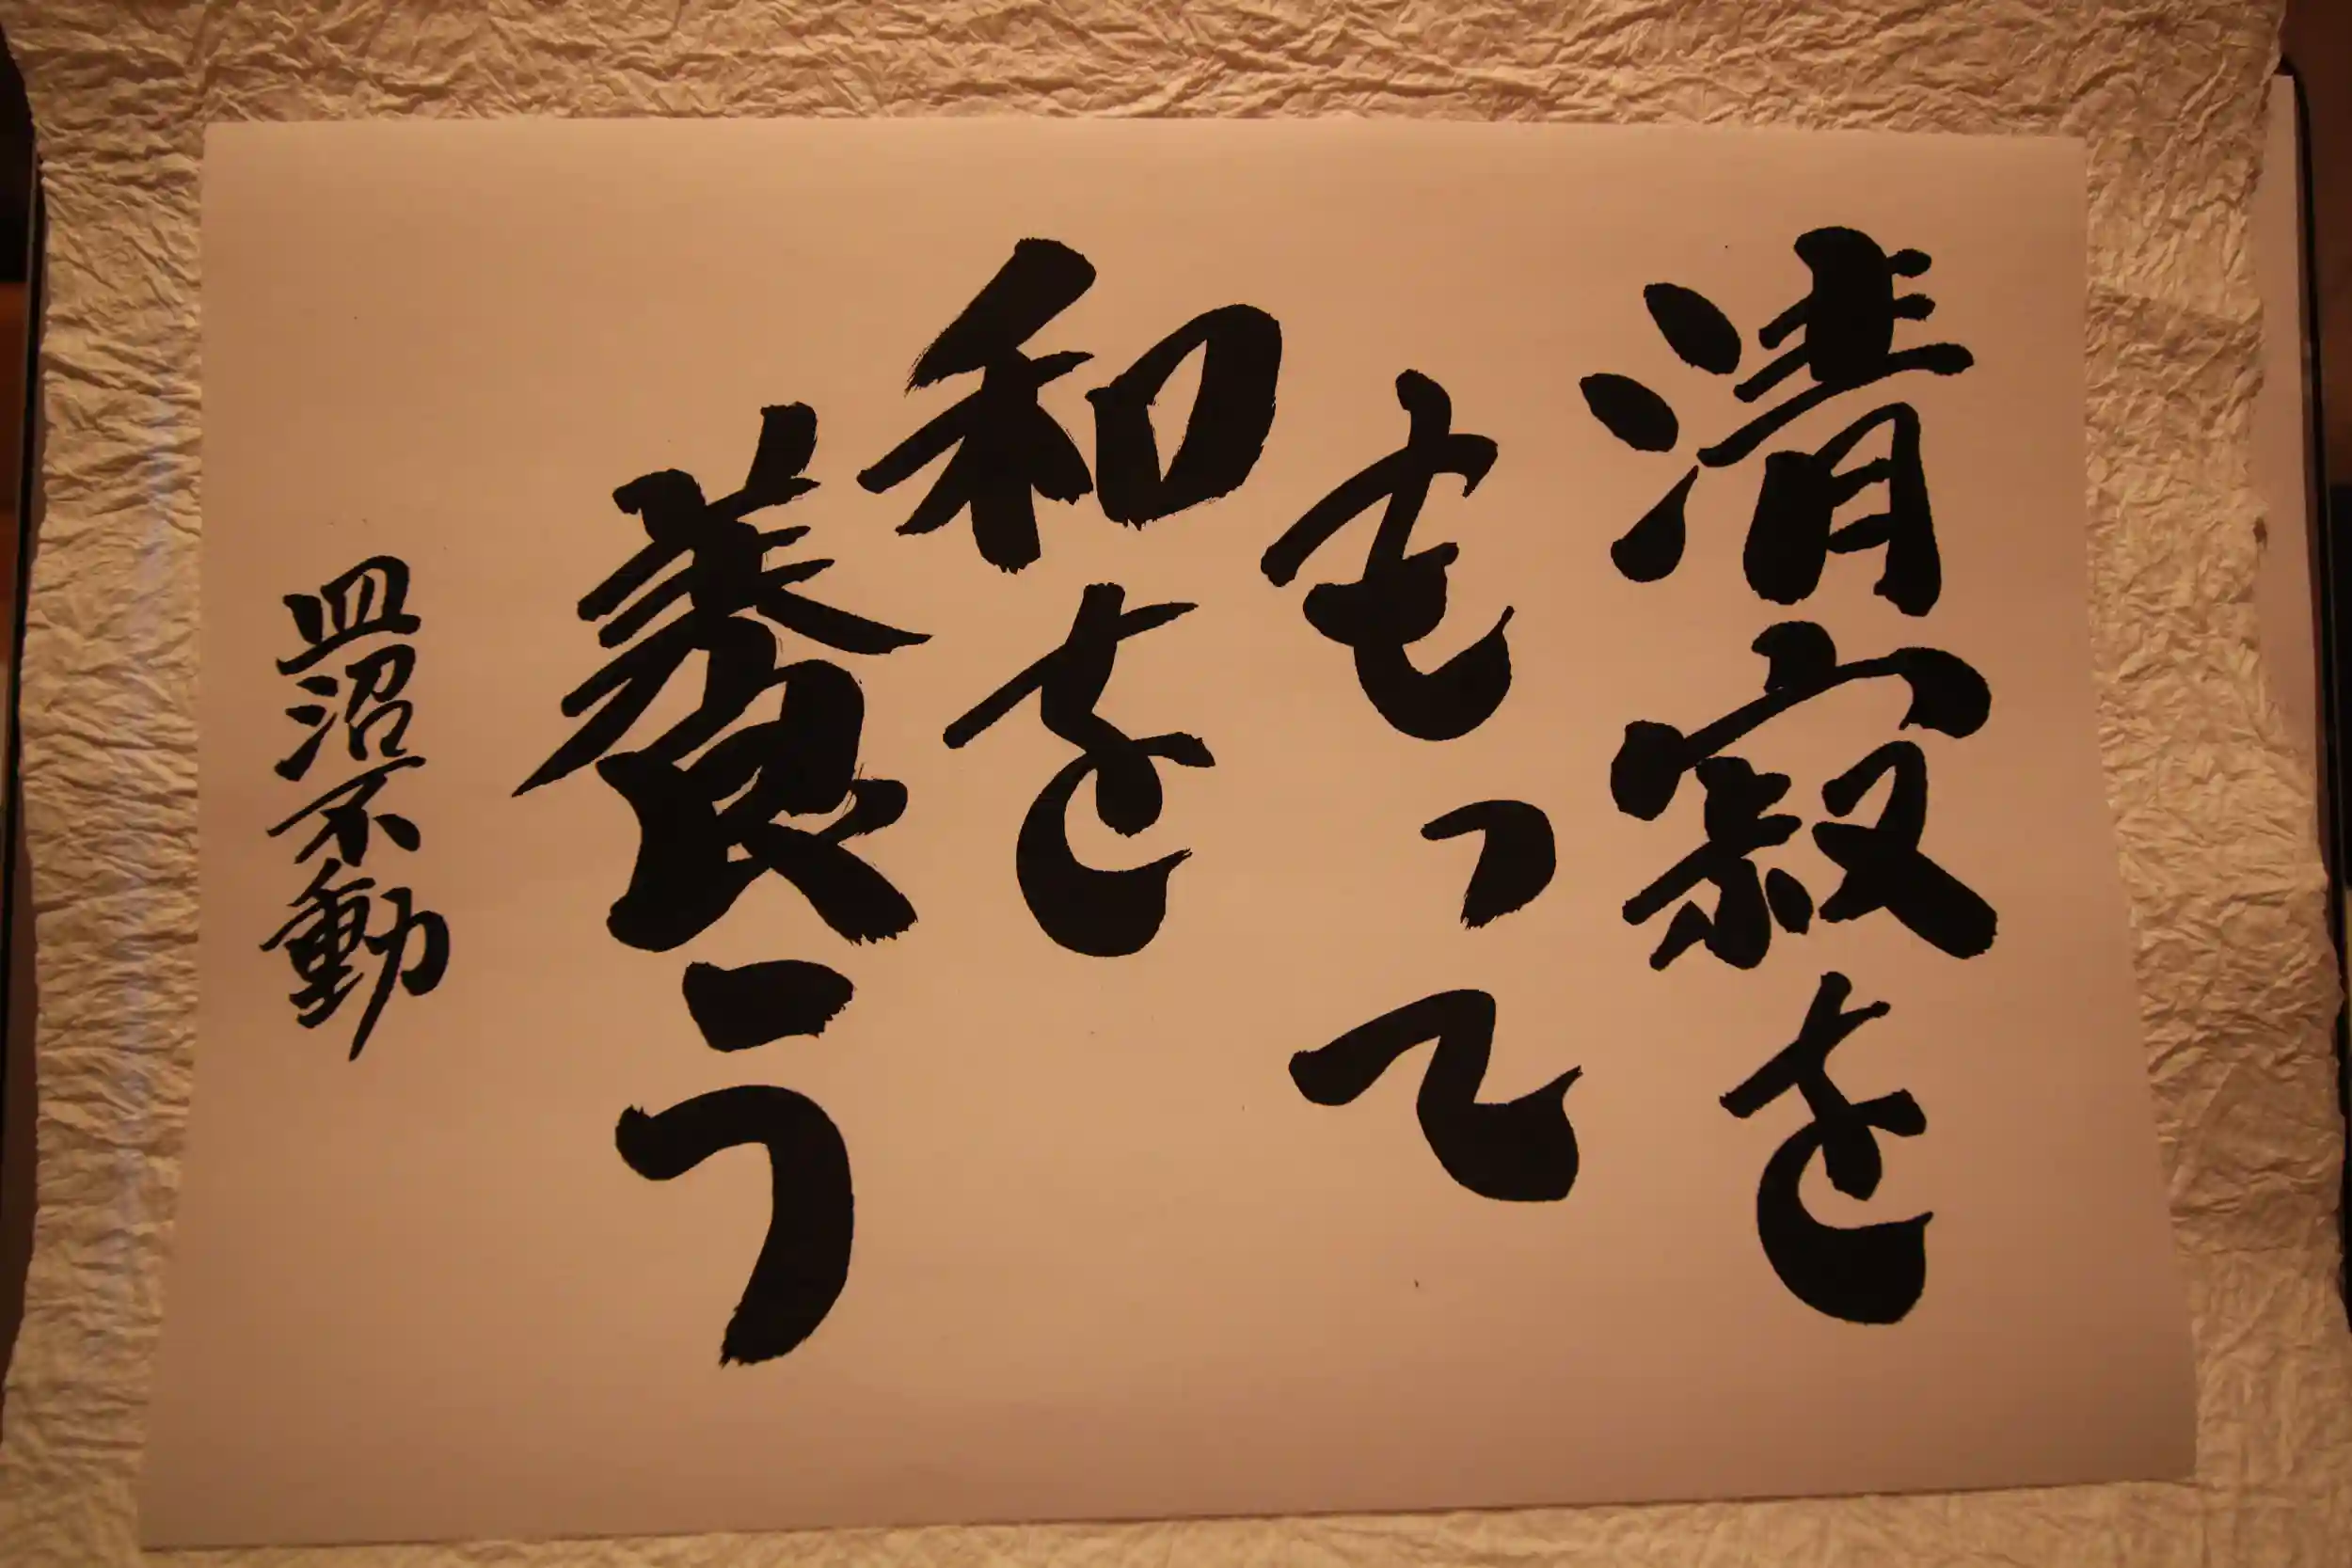 清寂を
もって
和を
養う
皿沼不動